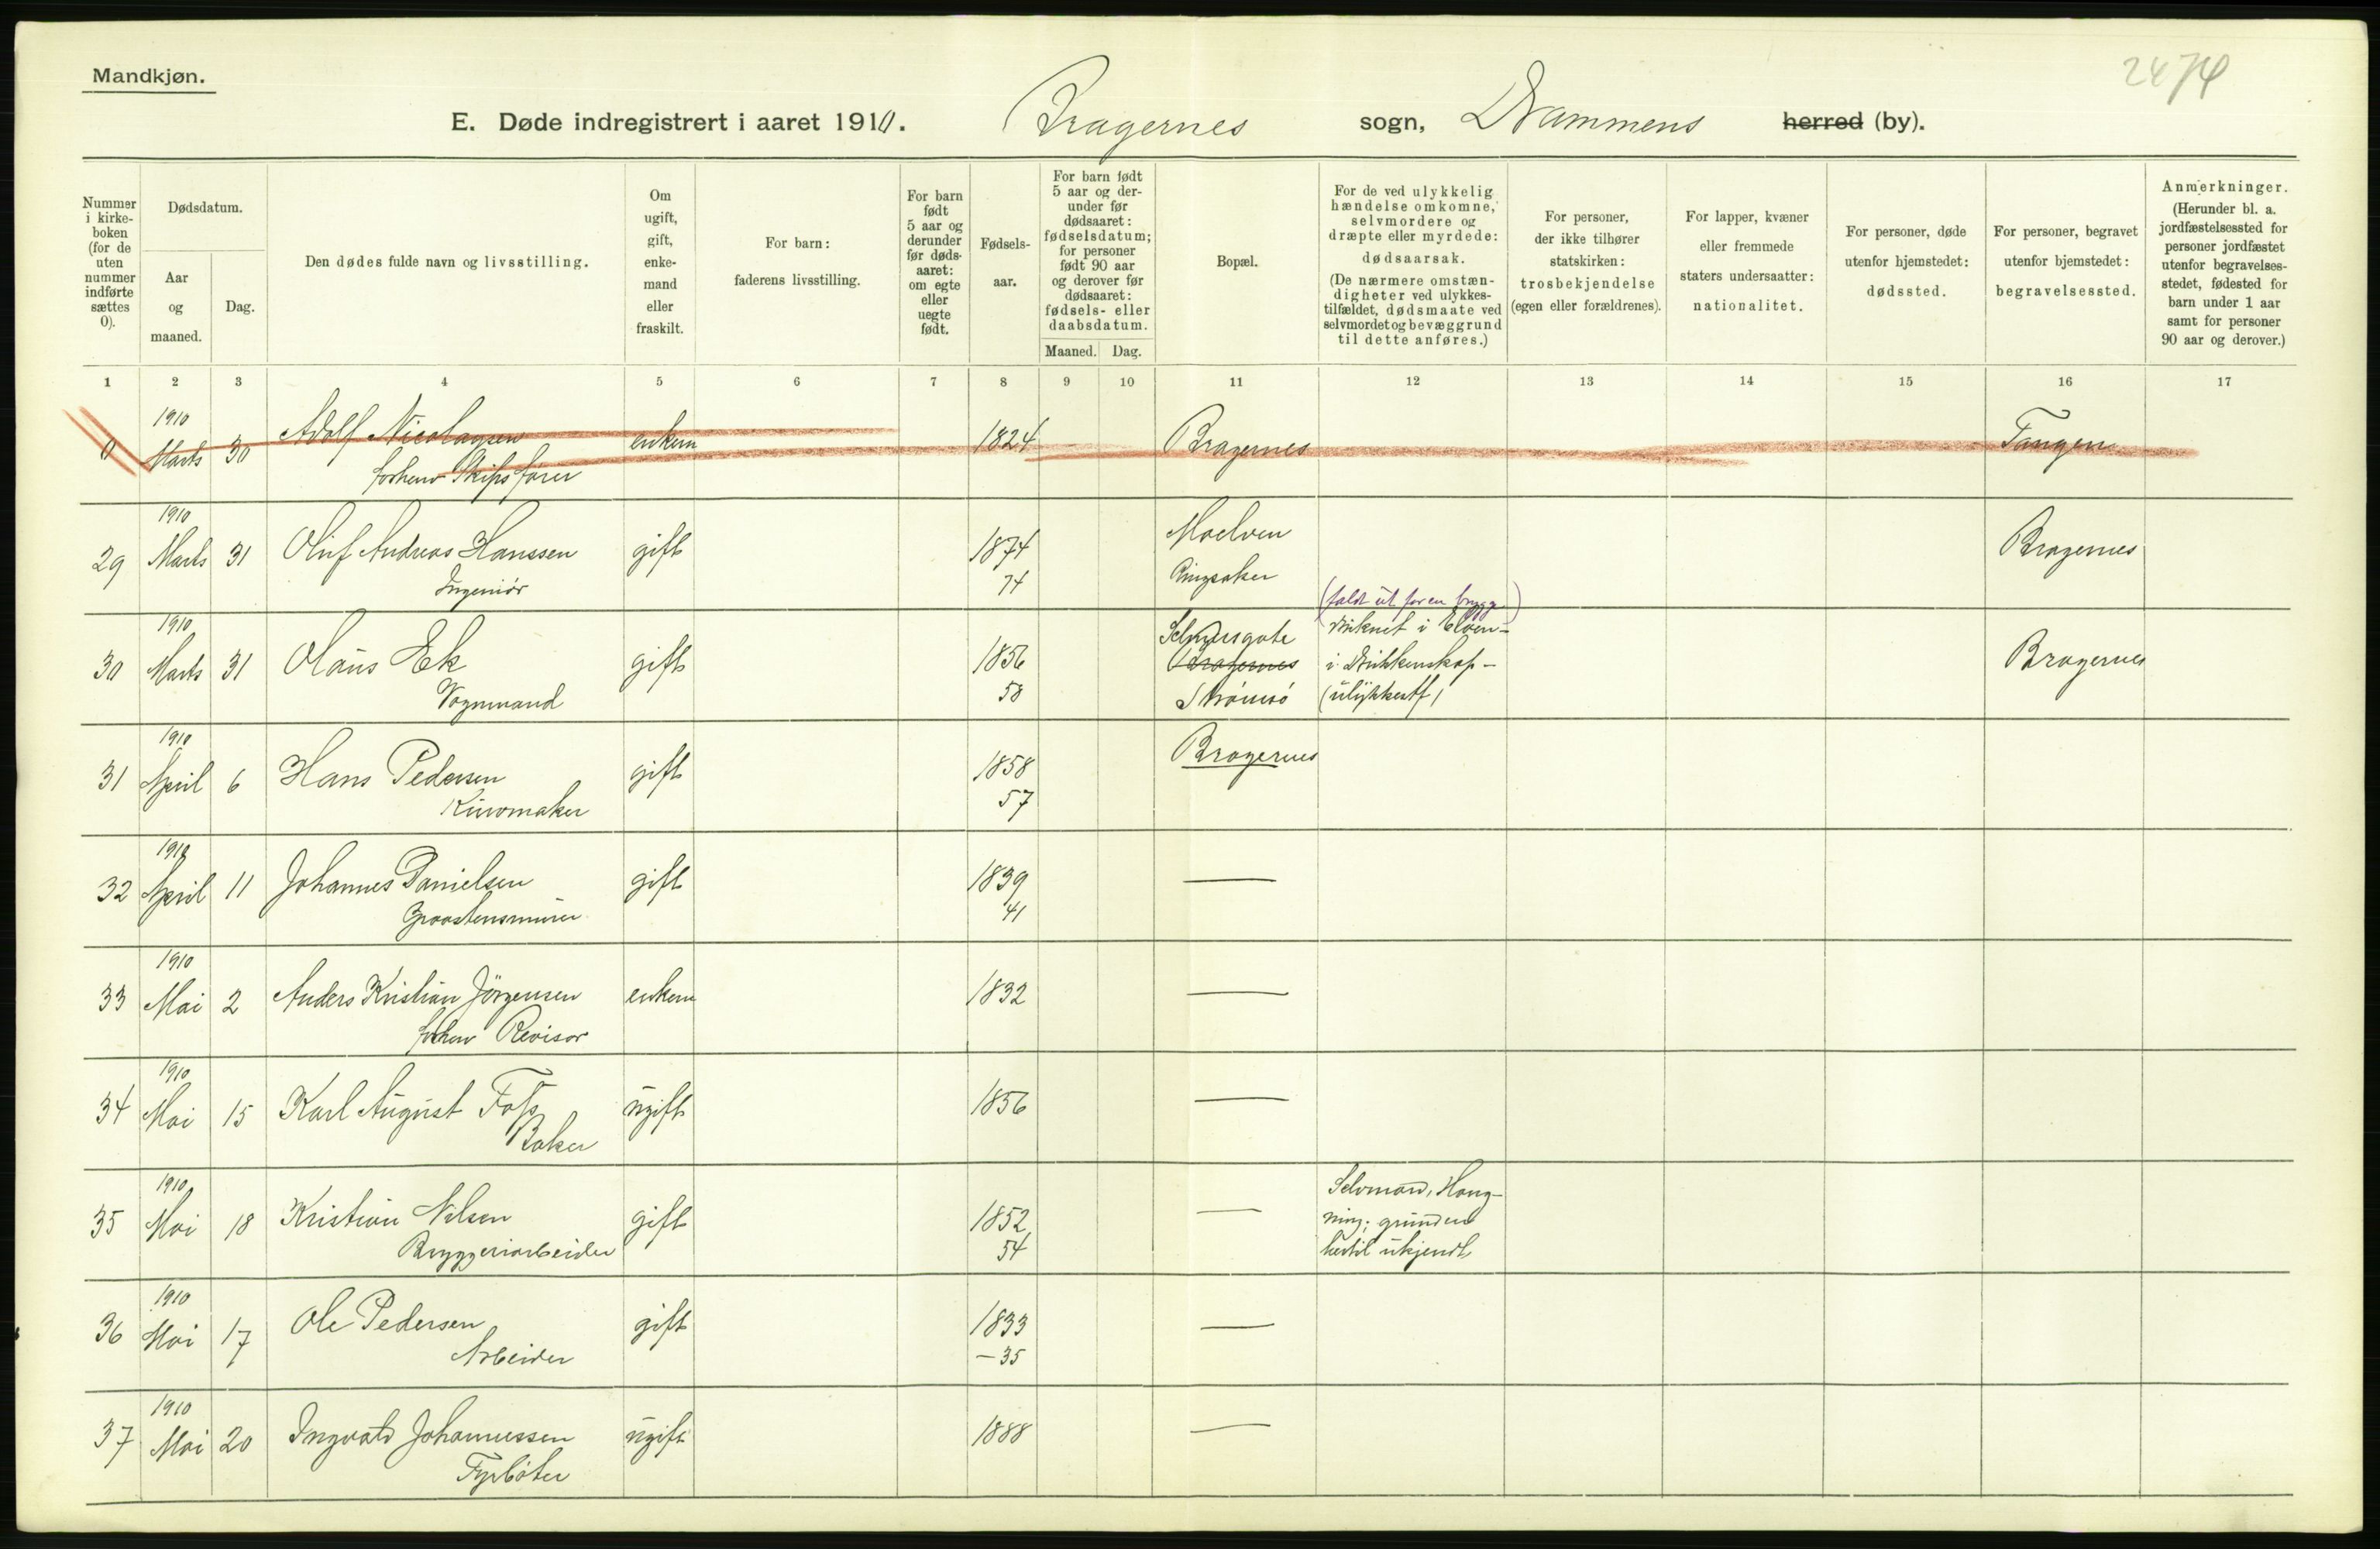 Mandkjøn.
2474
E. Døde indregistrert i aaret 1910. Bragernes sogn, Drammens herred (by).
Nummer i kirke- boken (for de uten nummer indførte sættes 0).
Dødsdatum.
Aar og maaned.
Dag.
Den dødes fulde navn og livsstilling.
Om ugift, gift, enke- mand eller fraskilt.
For barn: faderens livsstilling.
For barn født 5 aar og derunder før døds- aaret: om egte eller uegte født.
Fødsels- aar.
For barn født 5 aar og der- under før dødsaaret: fødselsdatum; for personer født 90 aar og derover før dødsaaret: fødsels- eller daabsdatum.
Maaned. Dag.
Bopæl.
For de ved ulykkelig hændelse omkomne, selvmordere og dræpte eller myrdede: dødsaarsak. (De nærmere omstæn- digheter ved ulykkes- tilfældet, dødsmaate ved selvmordet og bevæggrund til dette anføres.)
For personer, der ikke tilhører statskirken: trosbekjendelse (egen eller forældrenes).
For lapper, kvæner eller fremmede staters undersaatter: nationalitet.
For personer, døde utenfor hjemstedet: dødssted.
For personer, begravet utenfor bjemstedet: begravelsessted.
Anmerkninger. (Herunder bl. a. jordfæstelsessted for personer jordfæstet utenfor begravelses- stedet, fødested for barn under 1 aar samt for personer 90 aar og derover.)
1 2 3 4 5 6 7 8 9 10 11 12 13 14 15 16 17
1910
0 Marts 30 Adolf Nicolaysen enkem 1824 Bragernes Tangen
forhenv Skipsfører
1910
29 Marts 31 Oluf Andreas Hanssen gift 1874 Moelven Bragernes
Ingeniör 74 Ringsaker
(faldt ut for en brygge)
1910
30 Marts 31 Olaus Ek gift 1856 Bragernes druknet i Elven- Bragernes
Vognmand 58 Strömsö i Drukkenskap-
(ulykkestf)
1910
31 April 6 Hans Pedersen gift 1858 Bragernes
Kurvmaker 57
1910
32 April 11 Johannes Danielsen gift 1839 —
Graastensmurer 41
1910
33 Mai 2 Anders Kristian Jörgensen enkem 1832 —
forhenv Revisor
1910
34 Mai 15 Karl August Foss ugift 1856 —
Baker
1910
35 Mai 18 Kristian Nilsen gift 1852 — Selvmord, Hæng-
Bryggeriarbeider 54 ning; grunden
hertil ukjendt
1910
36 Mai 17 Ole Pedersen gift 1833 —
Arbeider -35
1910
37 Mai 20 Ingvald Johannessen ugift 1888 —
Fyrböter